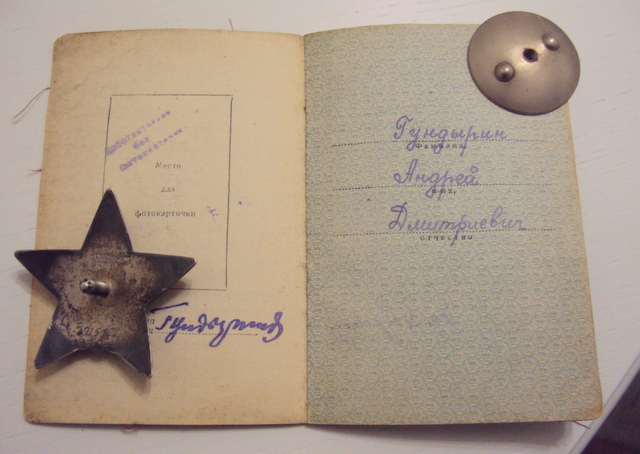 Действительно
без
фотокарточки
Место
для
фотокарточки
Гундырин
Гундырин
Фамилия,
Андрей
имя,
Дмитриевич
отчество